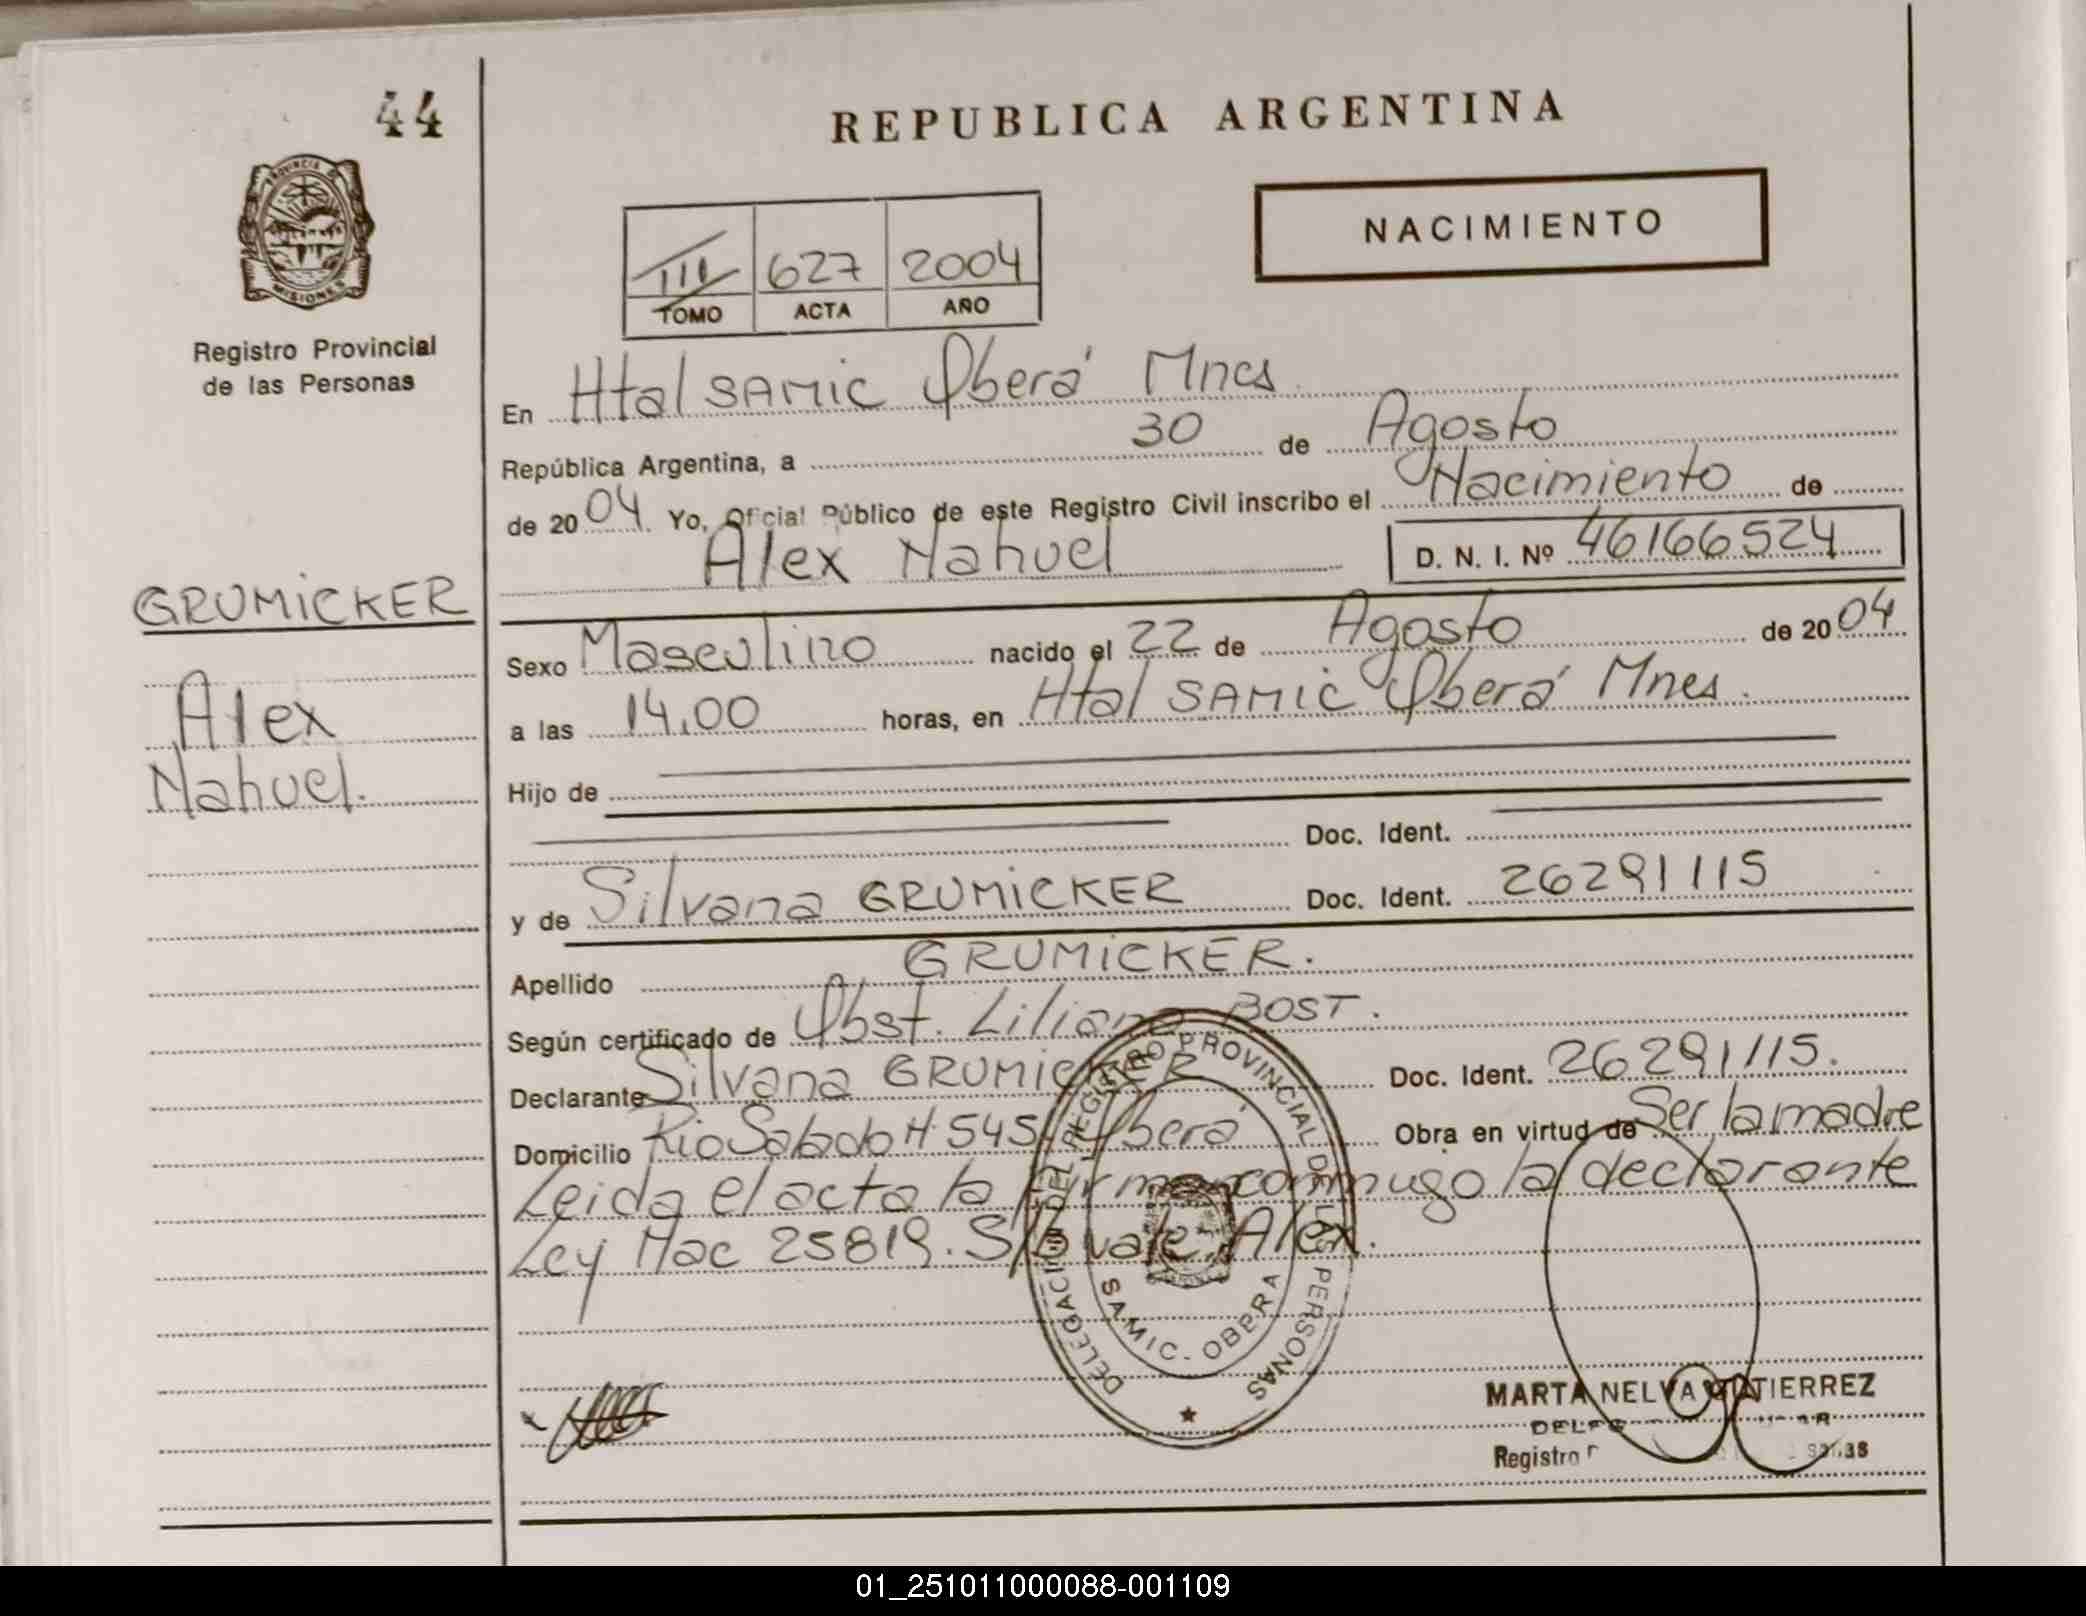 44
REPUBLICA ARGENTINA
PROVINCIA DE MISIONES
NACIMIENTO
III 627 2004
TOMO ACTA AÑO
Registro Provincial
de las Personas
En Htal SAMIC Oberá Mnes
República Argentina, a 30 de Agosto
de 20 04 Yo, Oficial Público de este Registro Civil inscribo el Nacimiento de
Alex Nahuel D. N. I. Nº 46166524
GRUMICKER
Alex
Nahuel.
Sexo Masculino nacido el 22 de Agosto de 20 04
a las 14,00 horas, en Htal SAMIC Oberá Mnes.
Hijo de
Doc. Ident.
y de Silvana GRUMICKER Doc. Ident. 26291115
Apellido GRUMICKER.
Según certificado de Obst. Liliana BOST.
Declarante Silvana GRUMICKER Doc. Ident. 26291115.
Domicilio Rio Salado H 545 Oberá Obra en virtud de Ser la madre
Leida el acta la firma conmigo la declarante
Ley Nac 25819. S/b vale, Alex.
DELEGACION DEL REGISTRO PROVINCIAL DE LAS PERSONAS
SAMIC - OBERA
MARTA NELVA GUTIERREZ
Registro
01_251011000088-001109